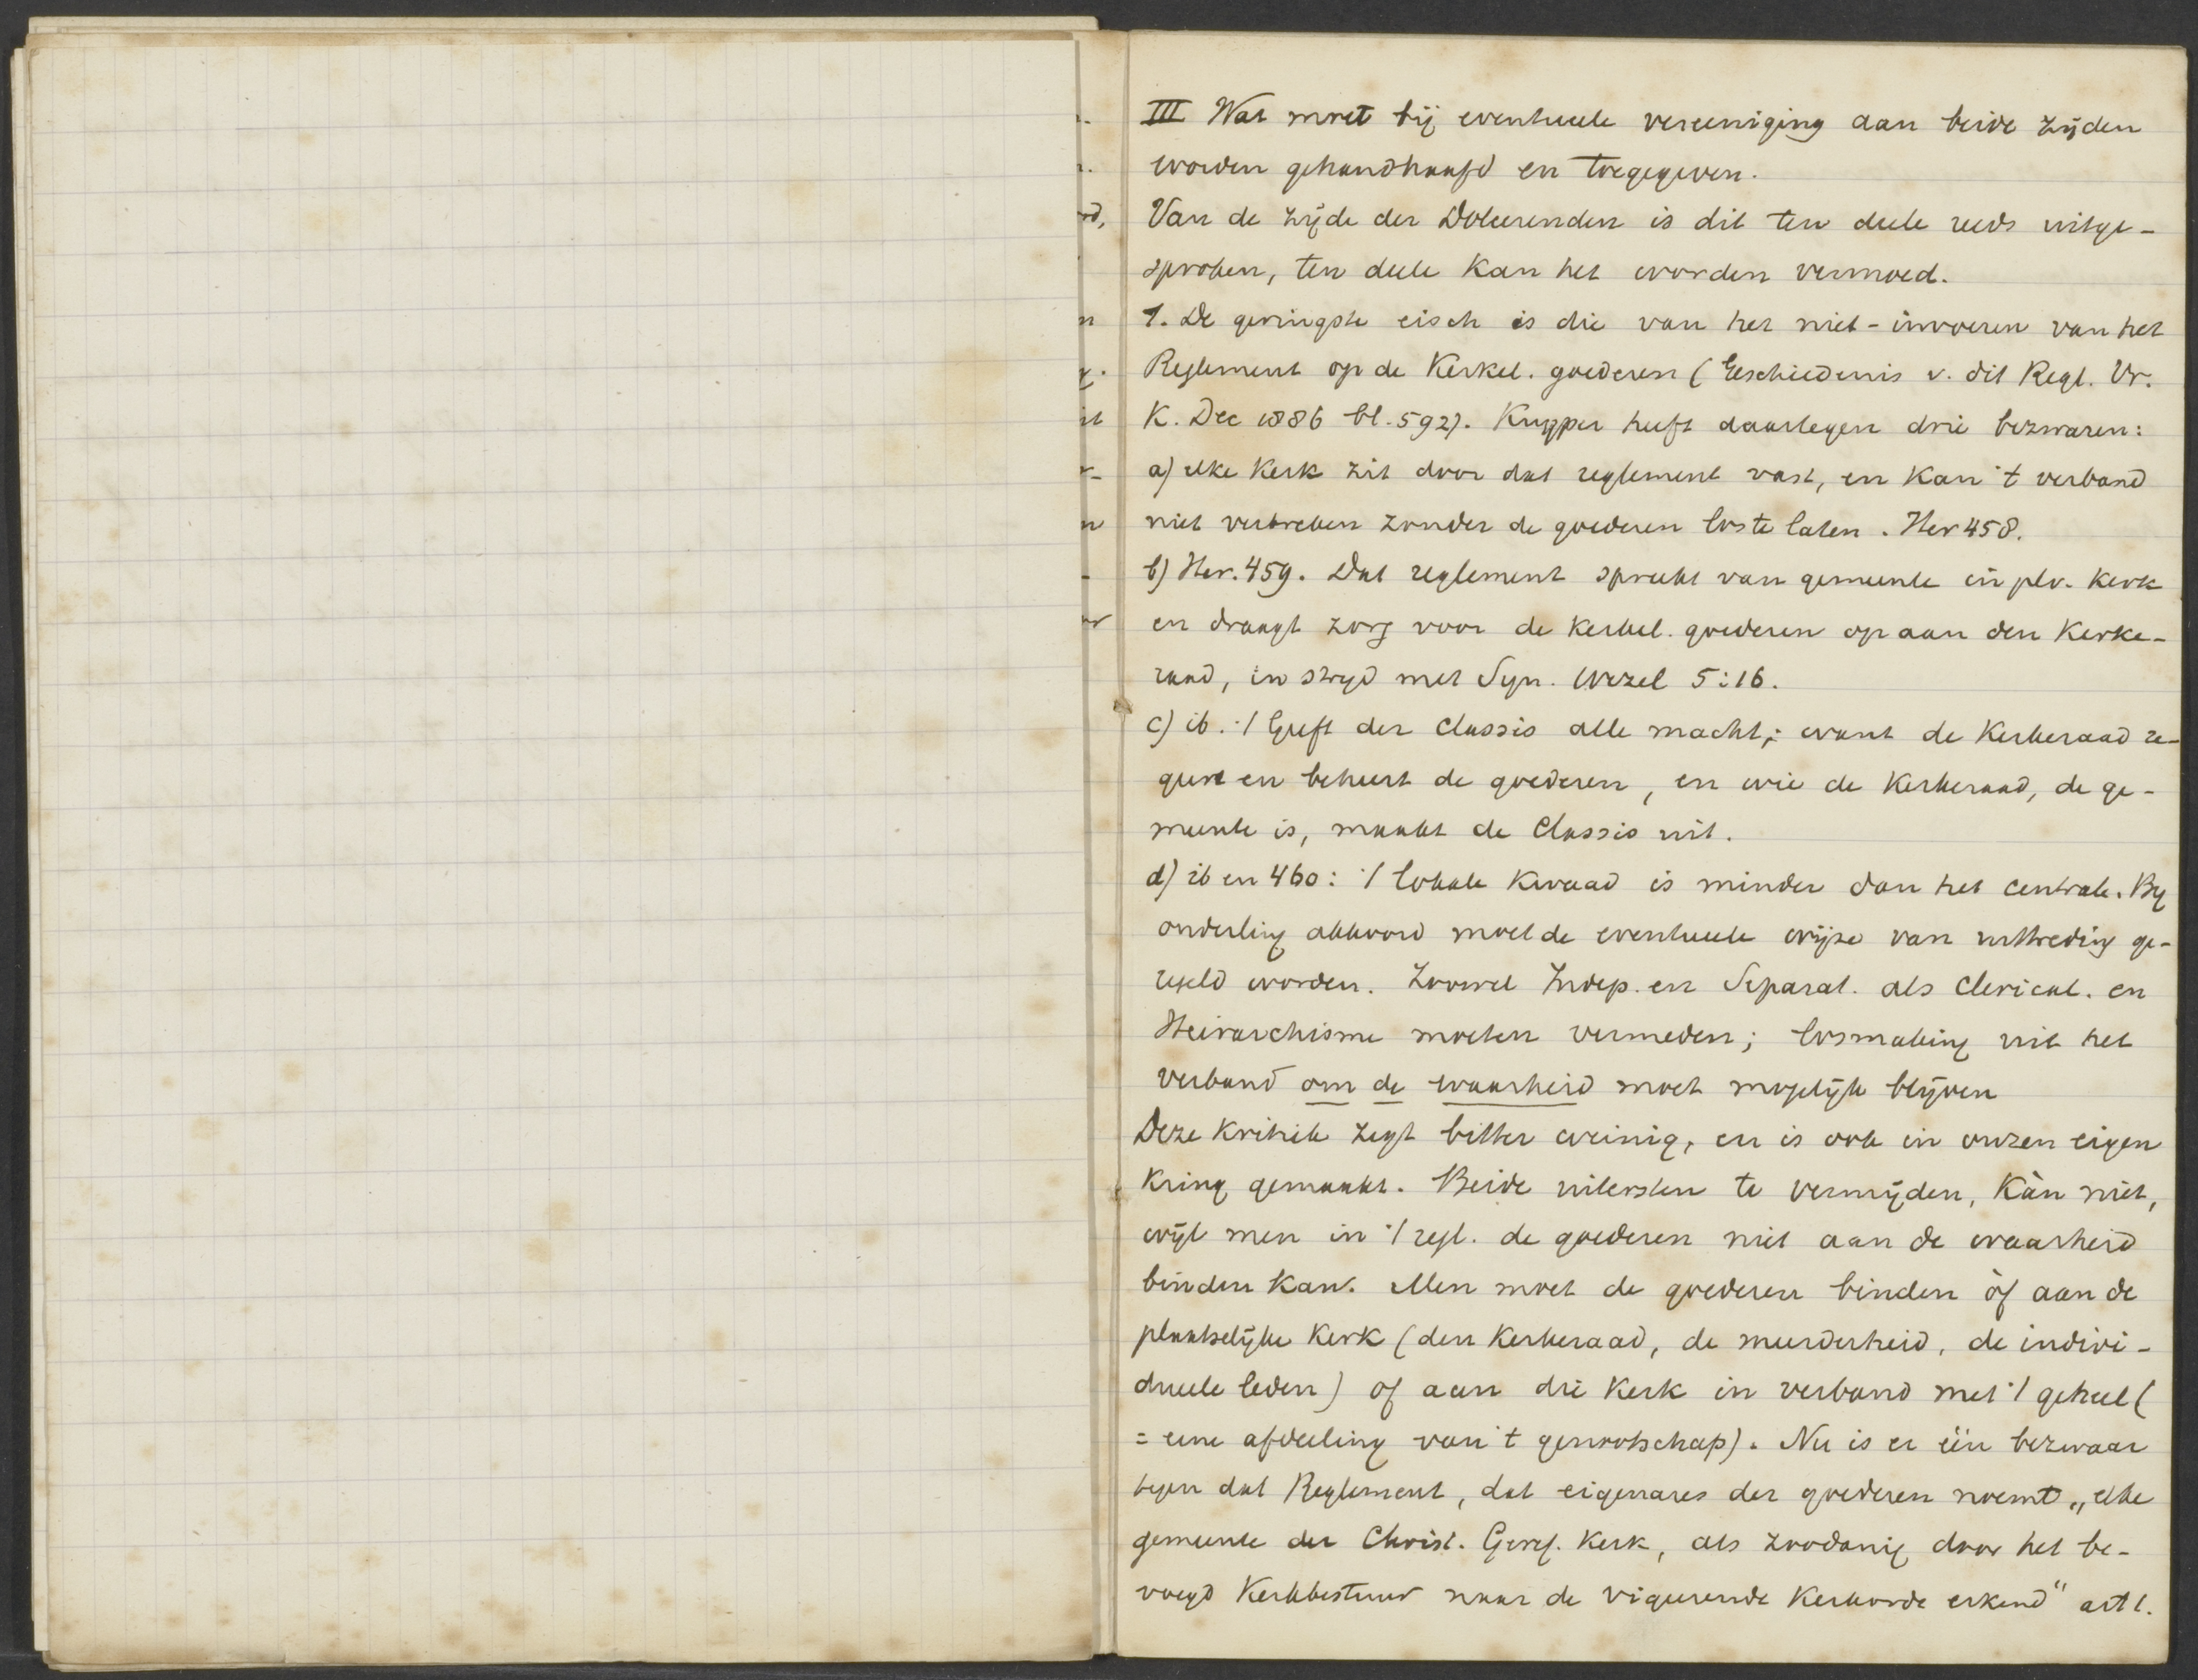 III Wat moet bij eventueele vereeniging aan beide zijden
worden gehandhaafd en toegegeven.
Van de zijde der Doleerenden is dit ten deele reeds uitge-
sproken, ten deele kan het worden vermoed.
1. De geringste eisch is die van het niet-invoeren van het
Reglement op de Kerkel. goederen (Geschiedenis v. dit Regl. Vr.
K. Dec 1886 bl. 592). Kuyper heeft daartegen drie bezwaren:
a) elke Kerk zit door dat reglement vast, en kan 't verband
niet verbreken zonder de goederen los te laten. Her 458.
b) Her. 459. Dat reglement spreekt van gemeente in plv. Kerk
en draagt zorg voor de kerkel. goederen op aan den Kerke-
raad, in stryd met Syn. Wezel 5:16.
c) ib. 't Geeft der Classis alle macht; want de Kerkeraad re-
geert en beheert de goederen, en wie de Kerkeraad, de ge-
meente is, maakt de Classis uit.
d) ib en 460: 't lokale kwaad is minder dan het centrale. By
onderling akkoord moet de eventueele wijze van uittreding ge-
regeld worden. Zoowel Indep. en Separat. als Clerical. en
Heirarchisme moeten vermeden; losmaking uit het
verband om de waarheid moet mogelijk blijven
Deze kritiek zegt bitter weinig, en is ook in onzen eigen
kring gemaakt. Beide uitersten te vermijden, kàn niet,
wijl men in 't regl. de goederen niet aan de waarheid
binden kan. Men moet de goederen binden òf aan de
plaatselijke Kerk (den Kerkeraad, de meerderheid, de indivi-
dueele leden) of aan die Kerk in verband met 't geheel (
= eene afdeeling van 't genootschap). Nu is er één bezwaar
tegen dat Reglement, dat eigenares der goederen noemt „elke
gemeente der Christ. Geref. Kerk, als zoodanig door het be-
voegd Kerkbestuur naar de vigeerende Kerkorde erkend" art 1.